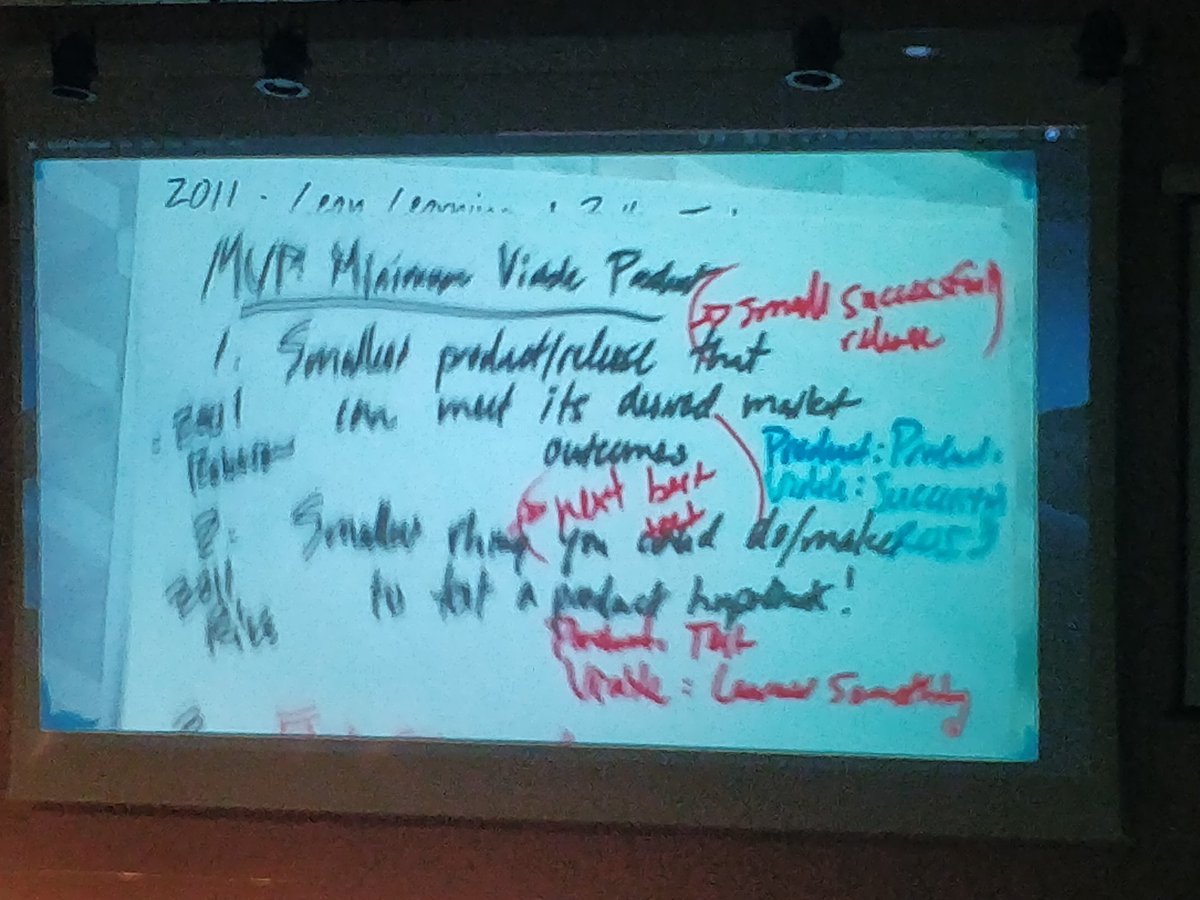 2011 - Lean Learning
MVP Minimum Viable Product
→ small successful
release
1. Smallest product/release that
can meet its desired market
outcomes
2001
Robinson
Product: Product
Viable: Successful
→ next best
test
2. Smallest thing you could do/make
to test a product hypothesis!
2011
Ries
Product: Test
Viable: Learner Something